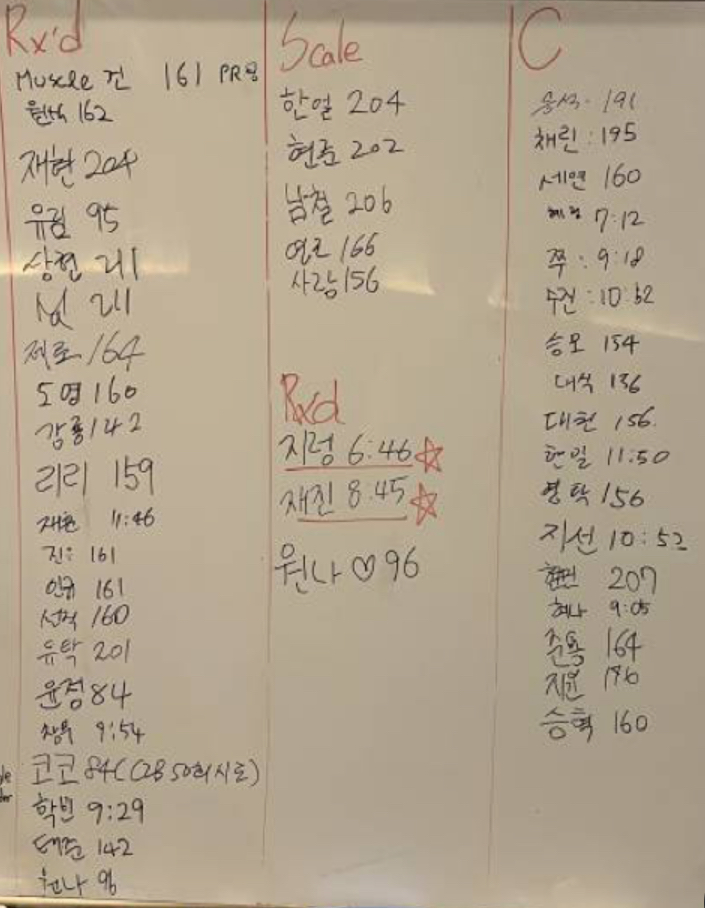 Rx'd
Muscle 건 161 PR
원식 162
재현 204
유림 95
상현 211
211
제로 164
도영 160
강룡 142
리리 159
재훈 11:46
진우 161
인규 161
선적 160
유탁 201
윤정 84
창욱 9:54
코코 84 (C2B 50회 시도)
학빈 9:29
태준 142
원나 96
Scale
한얼 204
현준 202
남철 206
연로 166
사랑 156
Rxd
지렁 6:46
재진 8:45
원나 ♡ 96
C
191
채린 : 195
세연 160
혜정 7:12
쭈 : 9:18
수진 : 10:32
승모 154
대식 136
대헌 156
한일 11:50
영탁 156
지선 10:52
207
혜나 9:05
준용 164
지윤 176
승혁 160